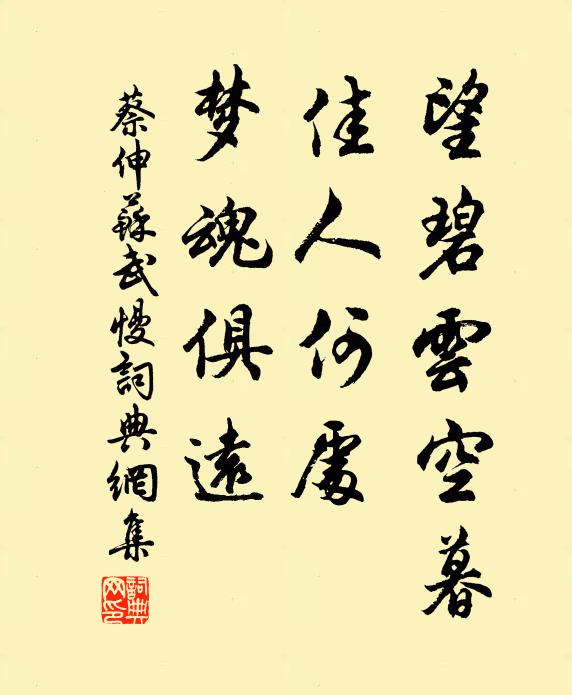 望碧雲空暮
佳人何處
梦魂俱遠
蔡伸蘇武慢詞典網集
詞典網印